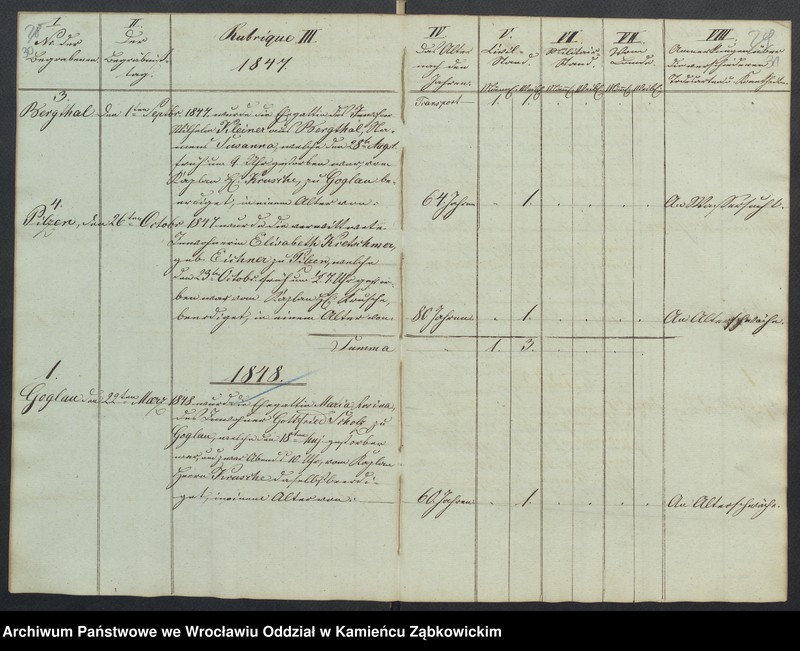 I.
No. der
Begrabenen.
II.
Der
Begräbniß-
tag.
Rubrique III
1847
IV.
Das Alter
nach den
Jahren.
V.
Civil-
Stand.
VI.
Militair-
Stand.
VII.
VIII.
Anmerkungen über
die verschiedenen
Männl. Weibl. Männl. Weibl. Männl. Weibl.
Transport 1. 1.
3.
Bergthal den 1ten Septbr 1847 wurde die Ehegattin des
Wilhelm Kleiner aus Bergthal, Na-
mens Susanna, welche den 28t. Augt.
früh um 4 Uhr gestorben war, vom
Kaplan H. Krusche, zu Goglau be-
erdiget, in einem Alter von:
64 Jahren 1. An Wassersucht.
4.
Pilzen, den 26ten Octobr 1847 wurde die verwittwete
Inwohnerin Elisabeth Kretschmer,
geb. Eichner zu Pilzen, welche
den 23t. Octobr früh um Uhr gestor-
ben war vom Kaplan H. Krusche,
beerdiget, in einem Alter von:
80 Jahren 1. An Altersschwäche.
Summa 1. 3.
1848.
1.
Goglau den 22ten März 1848 wurde die Ehegattin Maria Rosina,
des Inwohner Gottfried Scholz zu
Goglau, welche den 18ten huj gestorben
war und zwar Abend 10 Uhr, vom Kaplan
Herrn Krusche daselbst beerdi-
get, in einem Alter von:
60 Jahren 1. An Altersschwäche.
Archiwum Państwowe we Wrocławiu Oddział w Kamieńcu Ząbkowickim